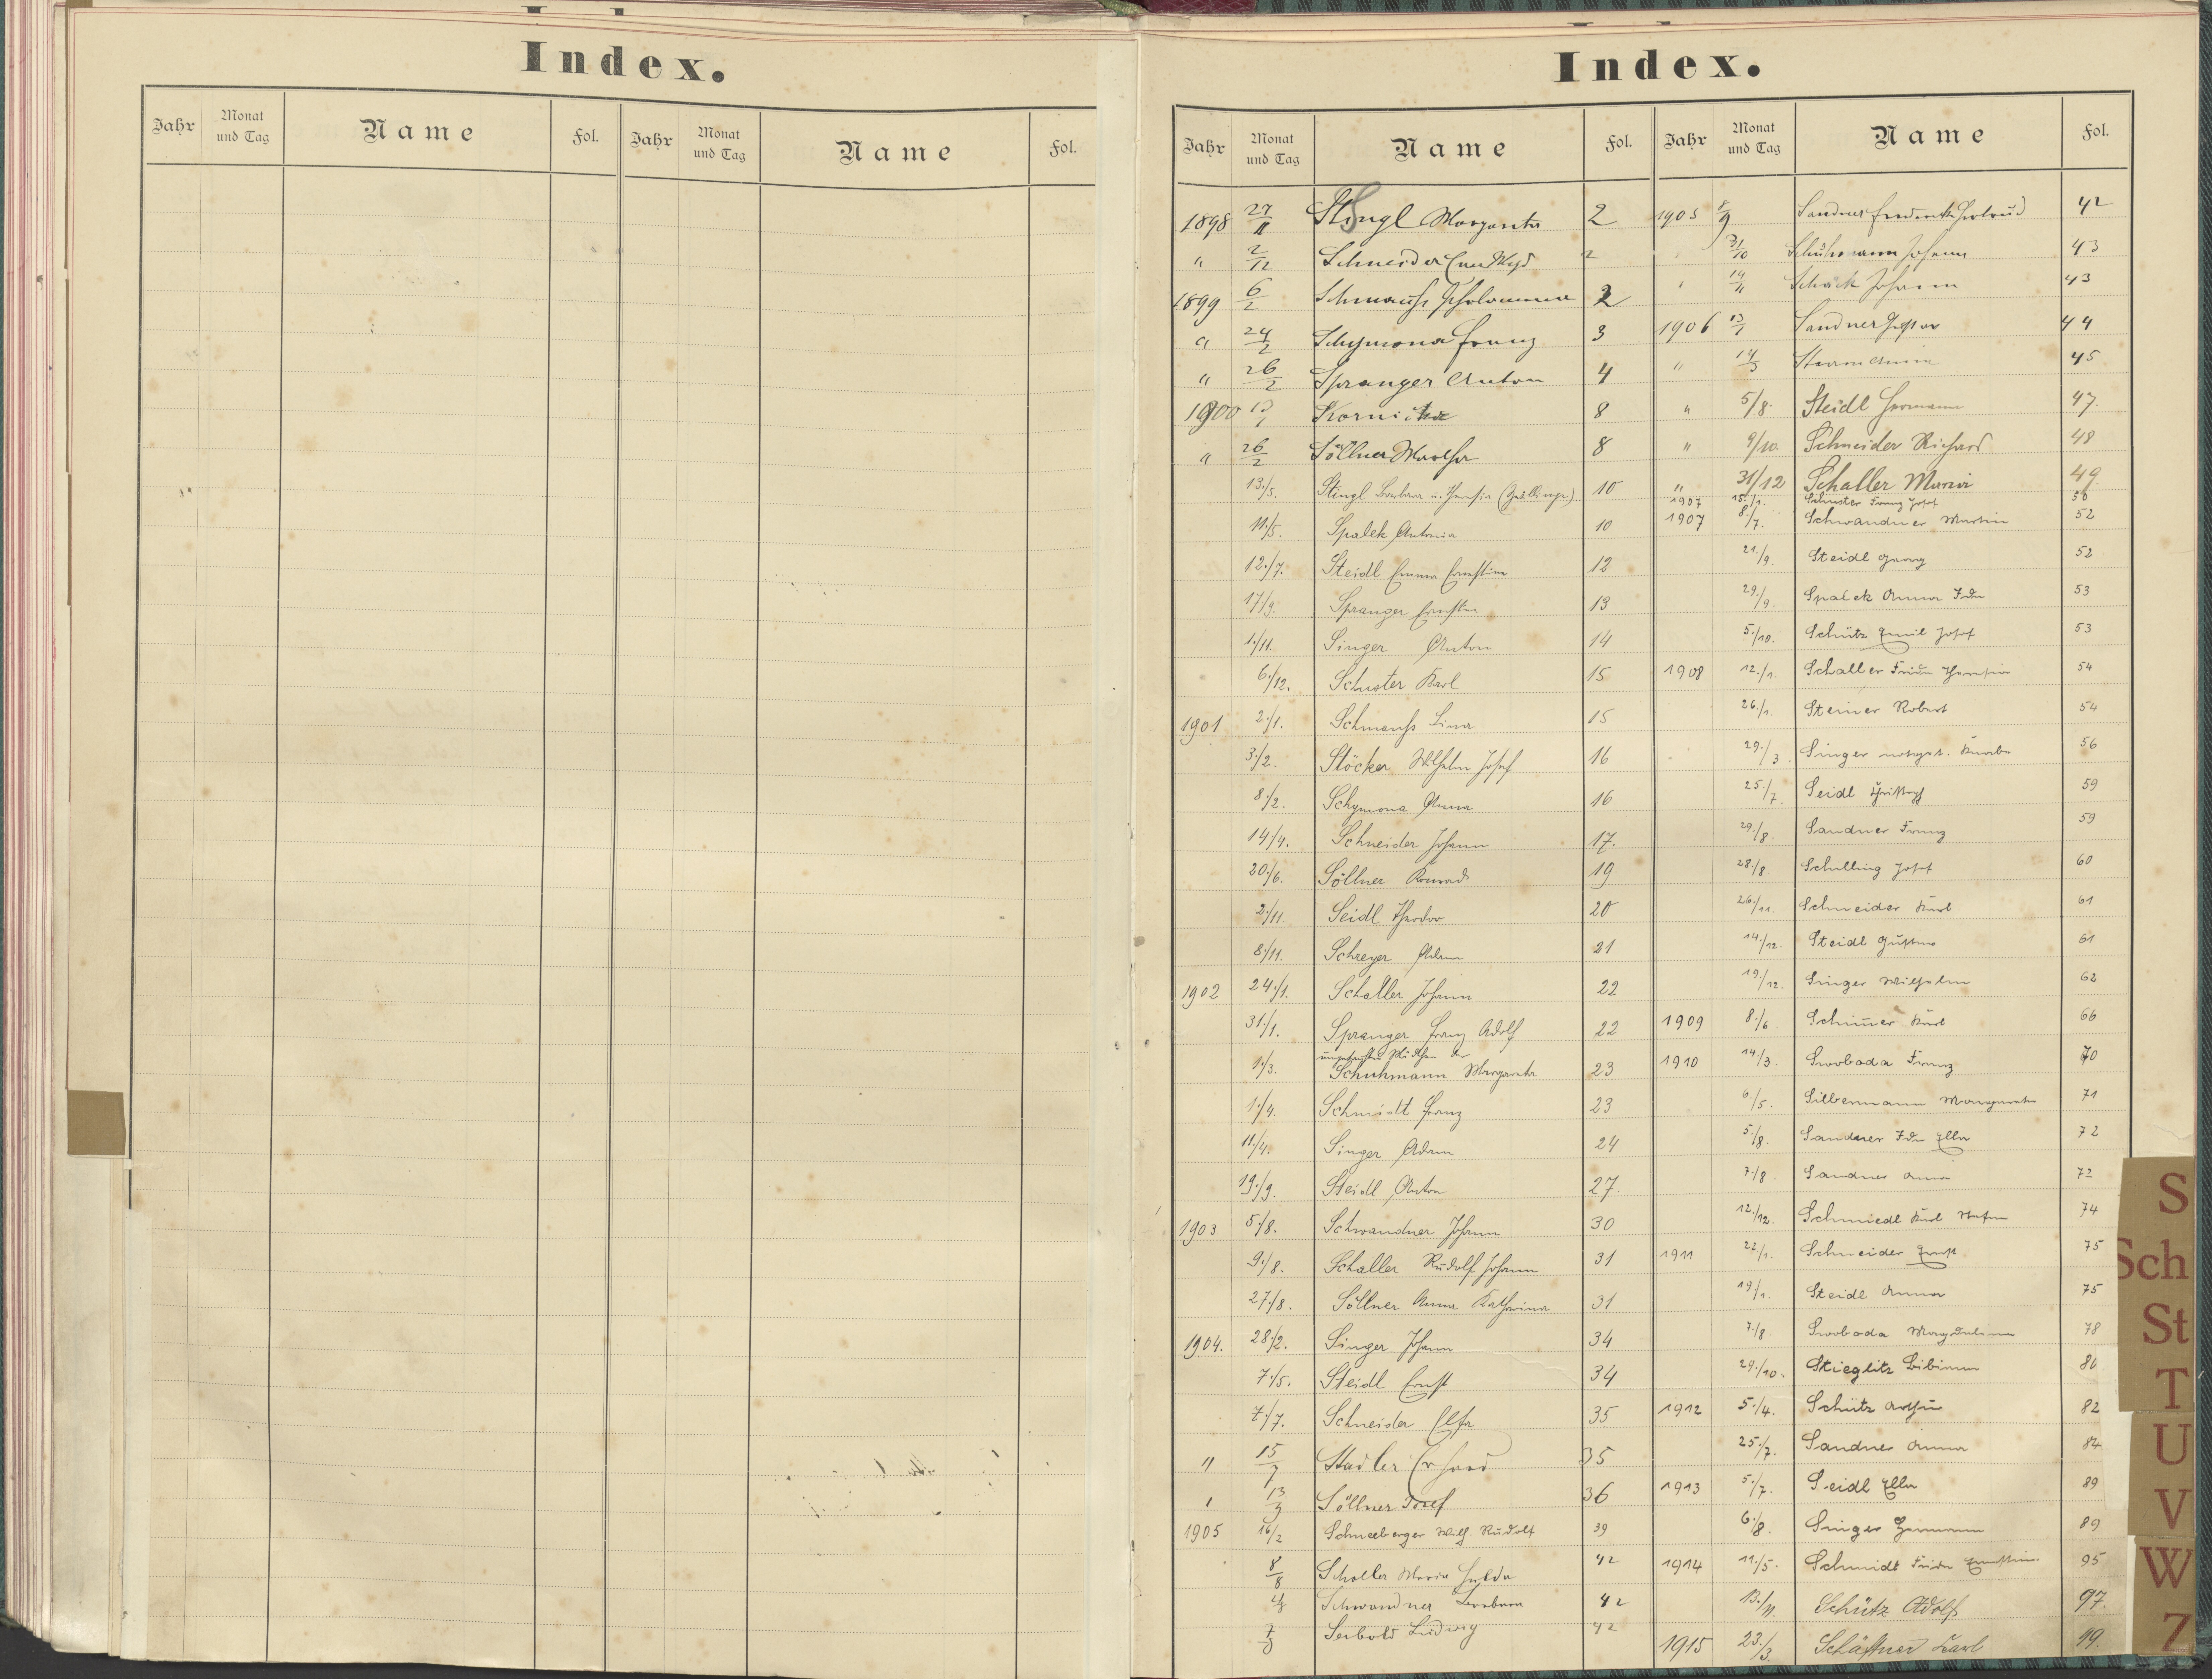 Index.
Jahr Monat und Tag Name Fol. Jahr Monat und Tag Name Fol.
Index.
Jahr Monat und Tag Name Fol. Jahr Monat und Tag Name Fol.
1898 27/11 Stingl Margareta 2
" 2/12 Schneider 2
1899 6/2 Schmauß 2
" 24/2 Schymona Franz 3
" 26/2 Spranger Anton 4
1900 Kornicka 8
" 26/2 Söllner Martha 8
13./5. Stingl Barbara u. Theresia (Zwillinge) 10
11./5. Spalek Antonia 10
12./7. Steidl Emma Ernestine 12
17/9. Spranger Ernestin 13
1./11. Singer Anton 14
6./12. Schuster Karl 15
1901 2./1. Schmauß Lina 15
3./2. Stöcker Wilhelm Josef 16
8./2. Schymona Anna 16
14./4. Schneider Johann 17.
20./6. Söllner Konrad 19
2./11. Seidl Theodor 20
8./11. Schreyer Adam 21
1902 24./1. Schaller Johann 22
31./1. Spranger Franz Adolf 22
ungetauftes Mädchen der
1./3. Schuhmann Margareta 23
1./4. Schmidt Franz 23
11./4. Singer Adam 24
19./9. Steidl Anton 27.
1903 5./8. Schwandner Johann 30
9./8. Schaller Rudolf Johann 31
27./8. Söllner Anna Katharina 31
1904. 28./2. Singer Johann 34
7./5. Steidl Ernst 34
7./7. Schneider Elsa 35
" 15/7 Stadler Erhard 35
13/9 Söllner Josef 36
1905 16/2 Schneeberger Wilh. Rudolf 39
8/8 Schaller Maria Hulda 42
Schwandner Barbara 42
Seibold Ludwig 42
1905 8/9 Sandner Gertrud 42
31/10 Schuhmann Johann 43
14/11 Schück Johann 43
1906 13/1 Sandner Gustav 44
" 14/3 Sturm Anna 45
" 5/8. Steidl Hermann 47.
" 9/10. Schneider Richard 48
" 31/12 Schaller Maria 49
1907 15./1. Schuster Franz Josef 50
1907 8./7. Schwandner Martin 52
21./9. Steidl Georg 52
29./9. Spalek Anna Ida 53
5./10. Schütz Emil Josef 53
1908 12./1. Schaller Frieda Theresia 54
26./1. Steiner Robert 54
29./3. Singer notget. Knabe 56
25./7. Seidl Christoph 59
29./8. Sandner Franz 59
28./8. Schilling Josef 60
26./11. Schneider Karl 61
14./12. Steidl Gustav 61
19./12. Singer Wilhelm 62
1909 8./6. Schimmer Karl 66
1910 14./3. Swoboda Franz 70
6./5. Silbermann Margareta 71
5./8. Sandner Ida Ella 72
7./8. Sandner Anna 72
12./12. Schmiedl Karl Stefan 74
1911 22/1. Schneider Ernst 75
19/1. Steidl Anna 75
7./8. Swoboda Magdalena 78
29./10. Stieglitz Bibiana 80
1912 5./4. Schütz Arthur 82
25./7. Sandner Anna 84
1913 5./7. Seidl Ella 89
6./8. Singer Hermann 89
1914 11./5. Schmidt Frieda Ernestine 95
13./11. Schütz Adolf 97.
1915 23./3. Schäffner Karl 99.
S
Sch
St
T
U
V
W
Z